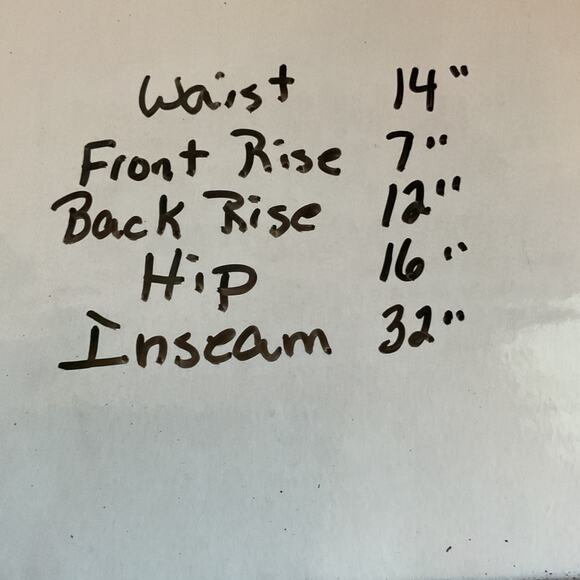 Waist 14"
Front Rise 7"
Back Rise 12"
Hip 16"
Inseam 32"